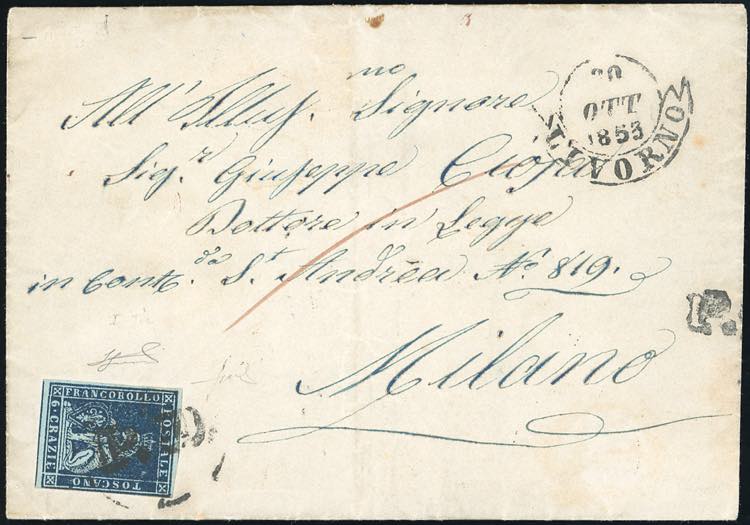 All' Illuf.mo Signore
Sig.r Giuseppe
Dottore in Legge
in Cont.da S.t Andrea No. 819.
Milano
20
OTT
1853
LIVORNO
P.
FRANCOBOLLO
POSTALE
TOSCANO
6·CRAZIE